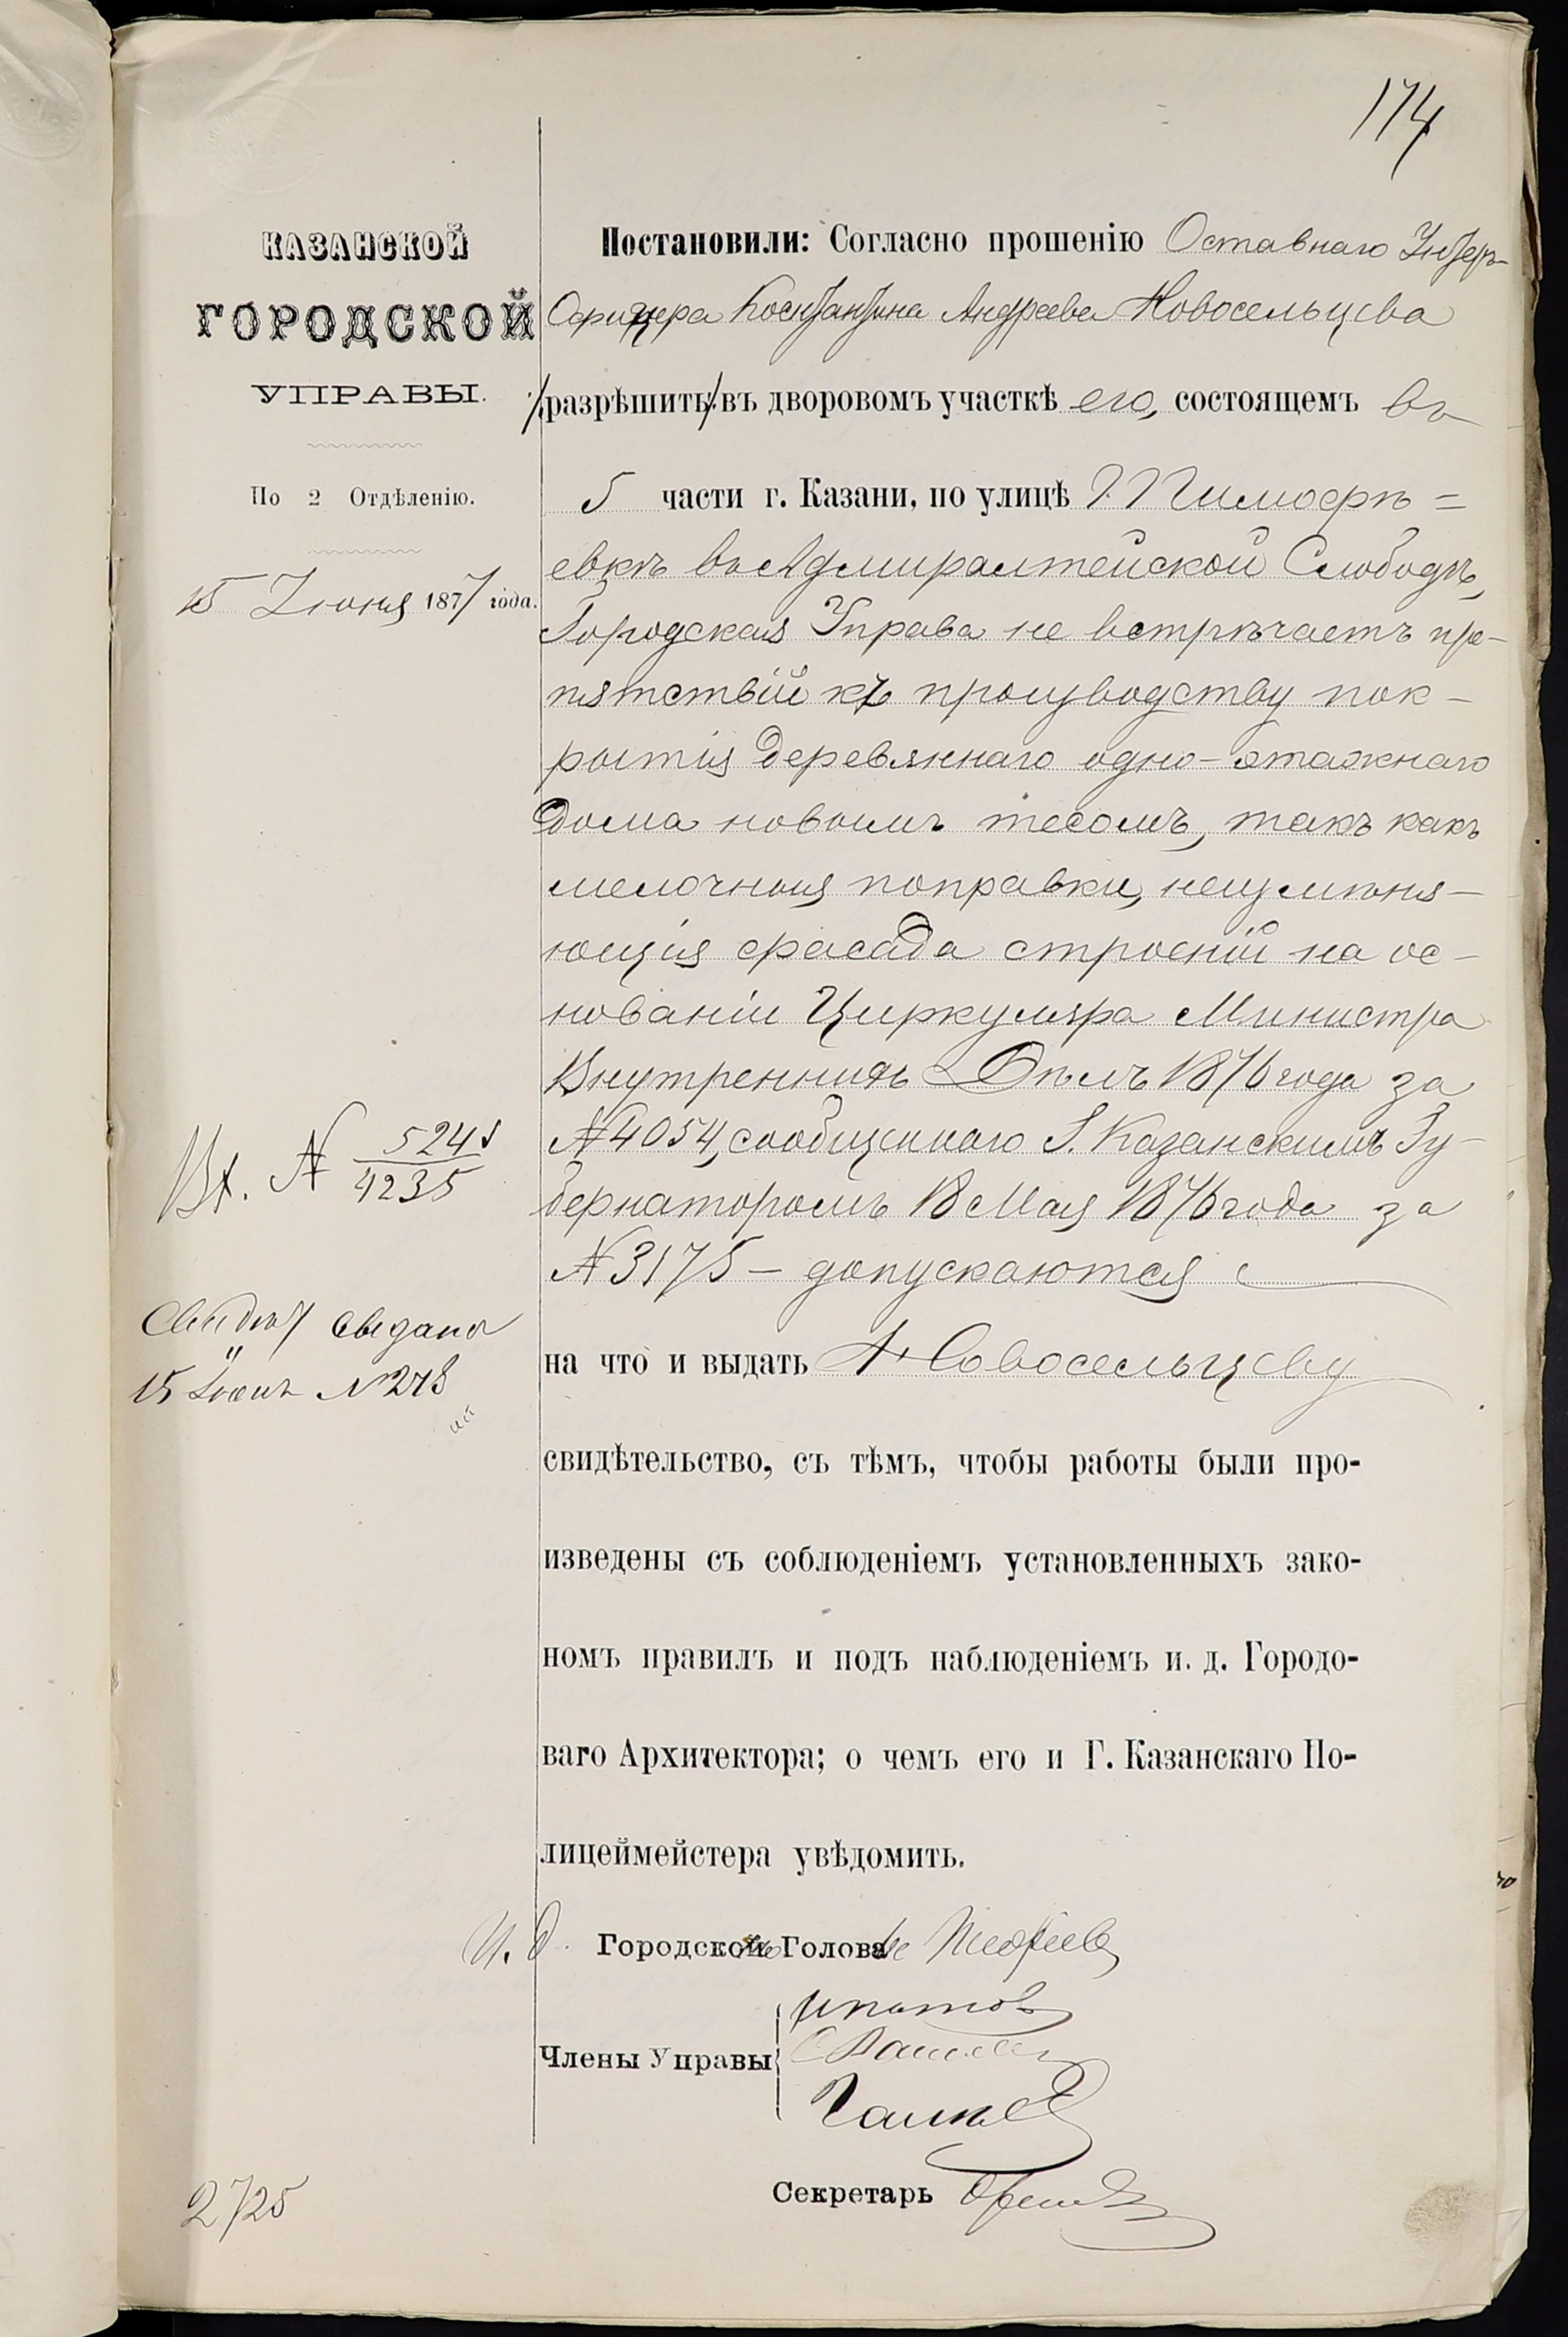 174
КАЗАНСКОЙ
ГОРОДСКОЙ
УПРАВЫ.
По 2 Отдѣленію.
15 Іюня 1877 года.
Вх. № 5245
4235
15 Іюня № 278
2725
Постановили: Согласно прошенію Оставнаго Унтеръ-
Офицера Константина Андреева Новосельцева
/разрѣшить/ въ дворовомъ участкѣ его, состоящемъ въ
5 части г. Казани, по улицѣ Тимофѣ=
евкѣ въ Адмиралтейской Слободѣ,
Городская Управа не встрѣчаетъ пре-
пятствій къ производству пок-
рытія деревяннаго одно-этажнаго
дома новымъ тесомъ, такъ какъ
мелочныя поправки, неизмѣня-
ющія фасада строеній на ос-
нованіи Циркуляра Министра
Внутреннихъ Дѣлъ 1876 года за
№ 4054, сообщеннаго Г. Казанскимъ Гу-
бернаторомъ 18 Мая 1876 года за
№ 3175 - допускаются
на что и выдать Новосельцеву
свидѣтельство, съ тѣмъ, чтобы работы были про-
изведены съ соблюденіемъ установленныхъ зако-
номъ правилъ и подъ наблюденіемъ и. д. Городо-
ваго Архитектора; о чемъ его и Г. Казанскаго По-
лицеймейстера увѣдомить.
И. д. Городской Голова
Члены Управы
Ипатов
Секретарь